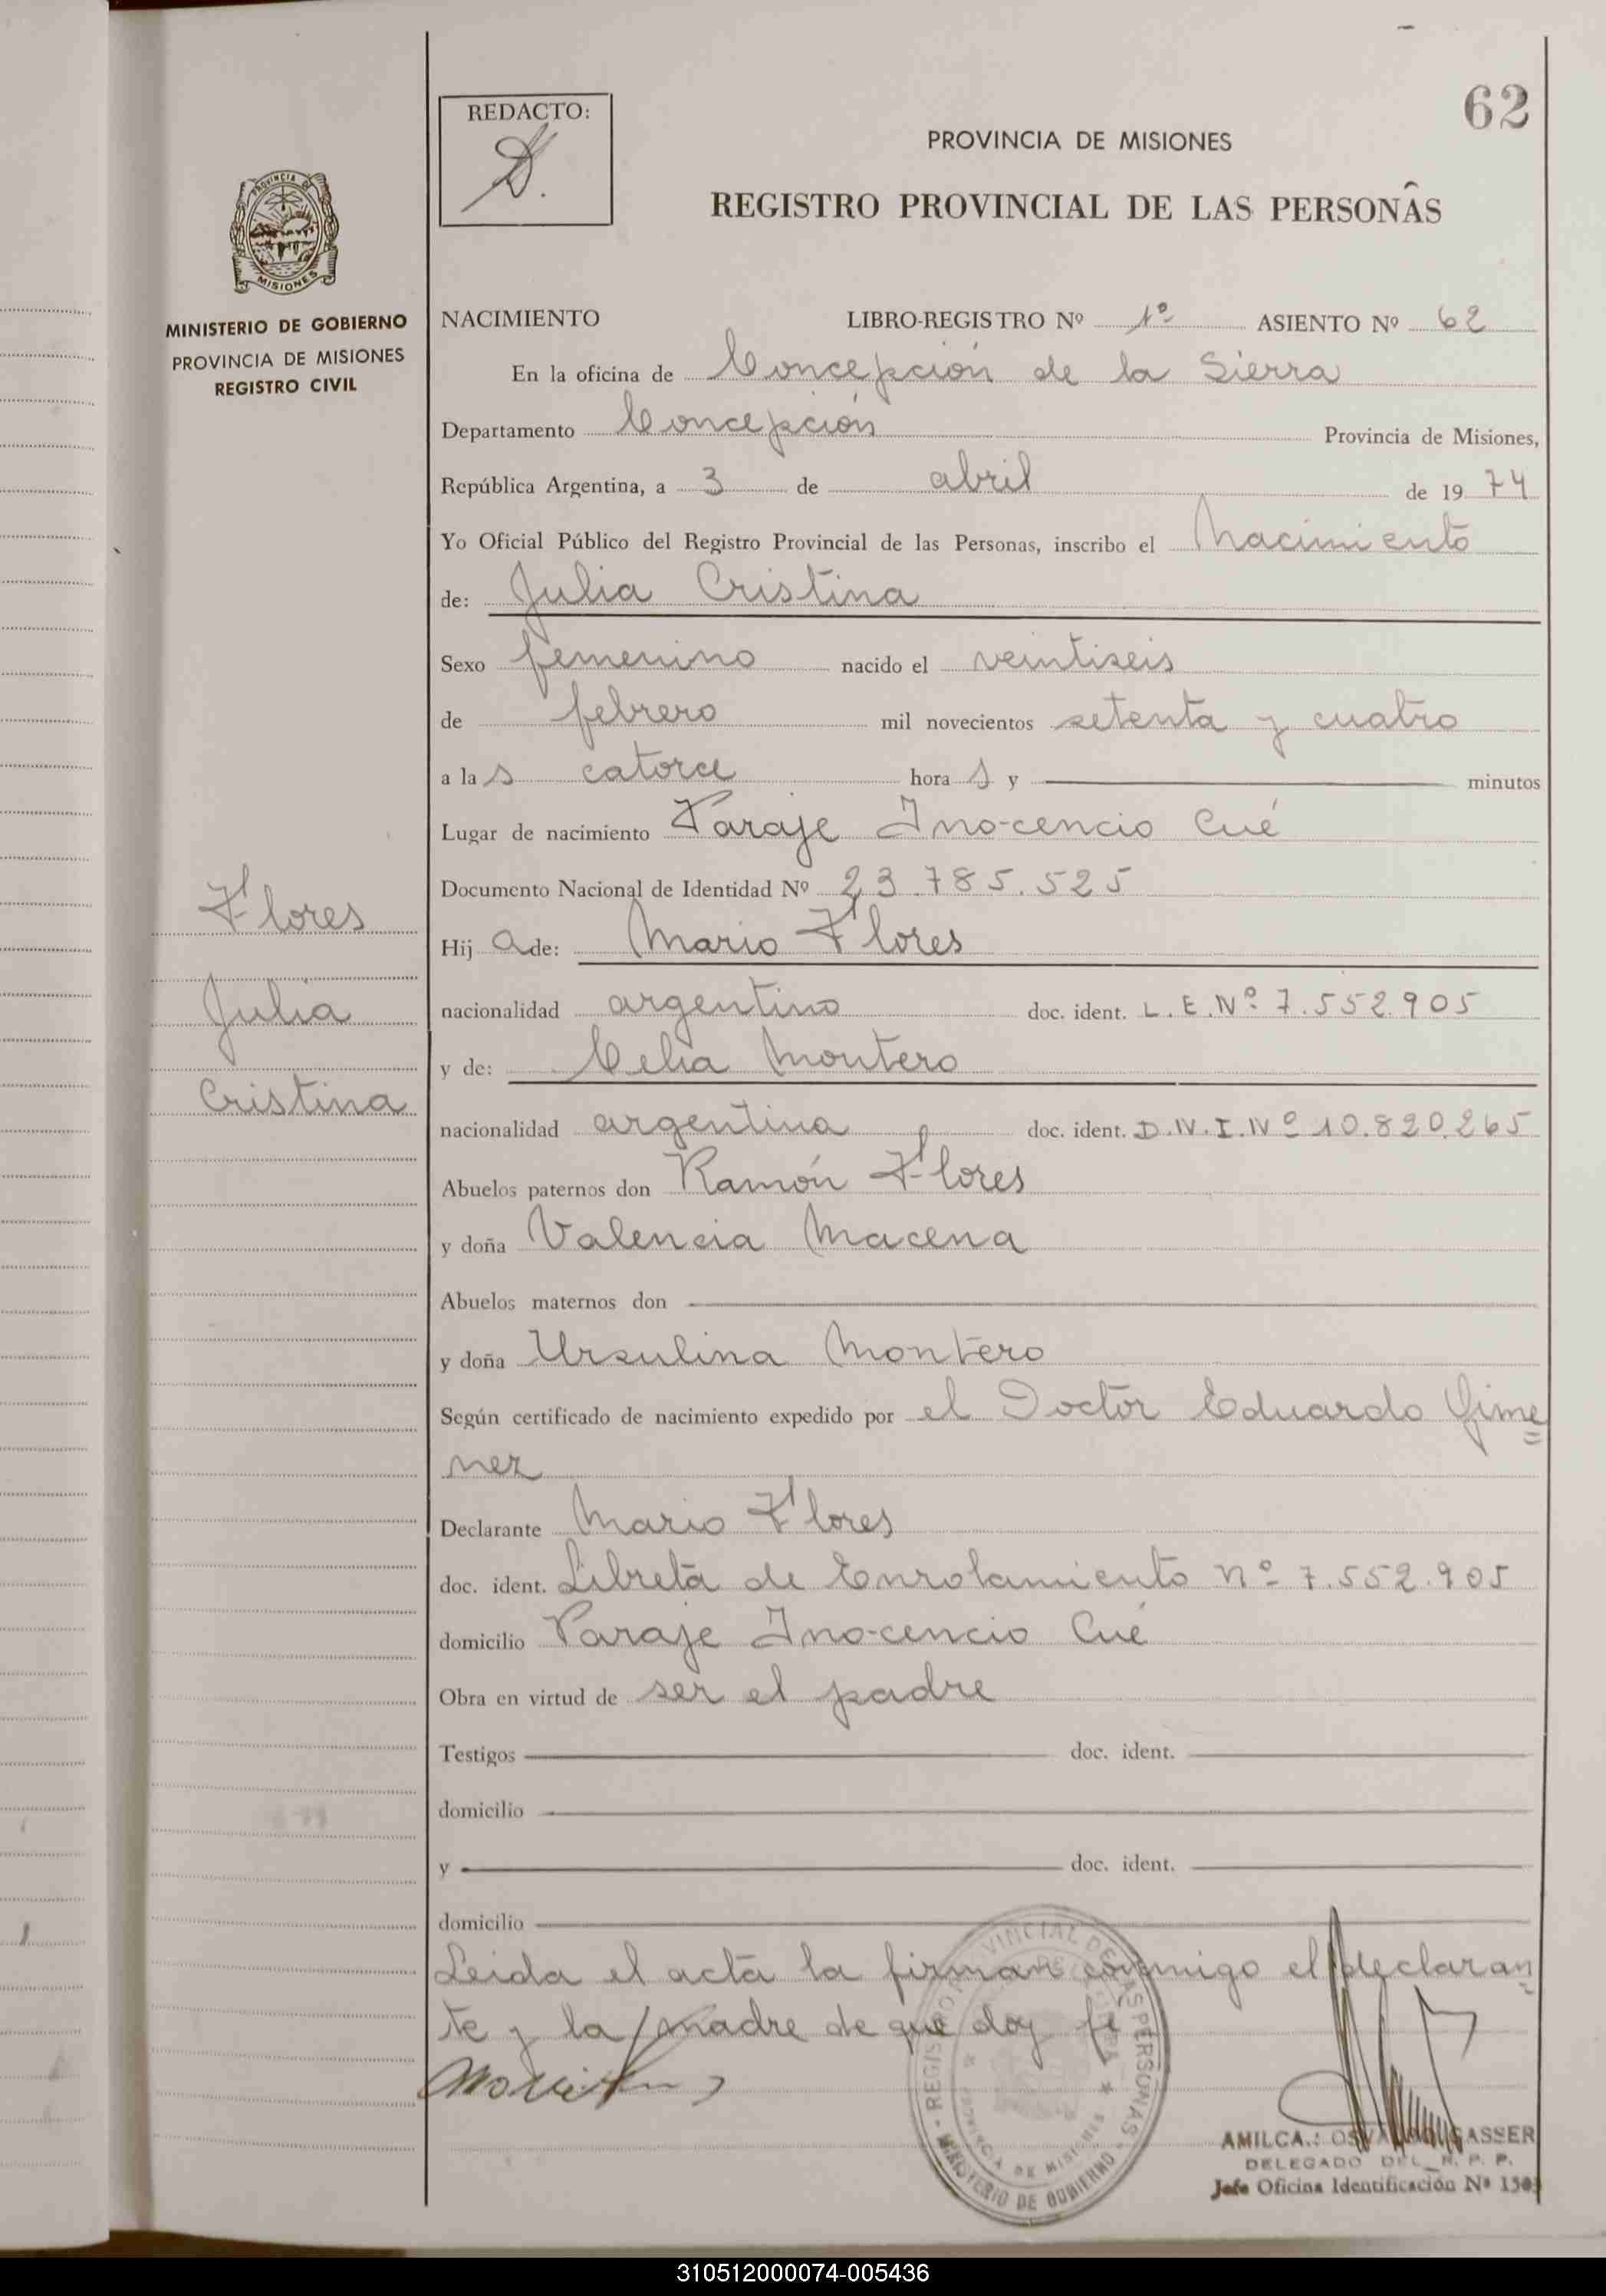 62
REDACTO:
PROVINCIA DE MISIONES
REGISTRO PROVINCIAL DE LAS PERSONAS
PROVINCIA DE
MISIONES
MINISTERIO DE GOBIERNO
PROVINCIA DE MISIONES
REGISTRO CIVIL
NACIMIENTO LIBRO-REGISTRO Nº 1º ASIENTO Nº 62
En la oficina de Concepción de la Sierra
Departamento Concepción Provincia de Misiones,
República Argentina, a 3 de abril de 1974
Yo Oficial Público del Registro Provincial de las Personas, inscribo el Nacimiento
de: Julia Cristina
Sexo femenino nacido el veintiseis
de febrero mil novecientos setenta y cuatro
a las catorce horas y minutos
Lugar de nacimiento Paraje Ino-cencio Cué
Documento Nacional de Identidad Nº 23.785.525
Hija de: Mario Flores
nacionalidad argentino doc. ident. L.E.Nº 7.552.905
y de: Celia Montero
nacionalidad argentina doc. ident. D.N.I.Nº 10.820.265
Abuelos paternos don Ramón Flores
y doña Valencia Macena
Abuelos maternos don
y doña Ursulina Montero
Según certificado de nacimiento expedido por el Doctor Eduardo Gime=
nez
Declarante Mario Flores
doc. ident. Libreta de Enrolamiento nº 7.552.905
domicilio Paraje Ino-cencio Cué
Obra en virtud de ser el padre
Testigos doc. ident.
domicilio
y doc. ident.
domicilio
Leida el acta la firman conmigo el declaran=
te y la madre de que doy fé
Flores
Julia
Cristina
REGISTRO PROVINCIAL DE LAS PERSONAS
MINISTERIO DE GOBIERNO
PROVINCIA DE MISIONES
GASSER
DELEGADO DEL R. P. P.
Jefe Oficina Identificación Nº
310512000074-005436